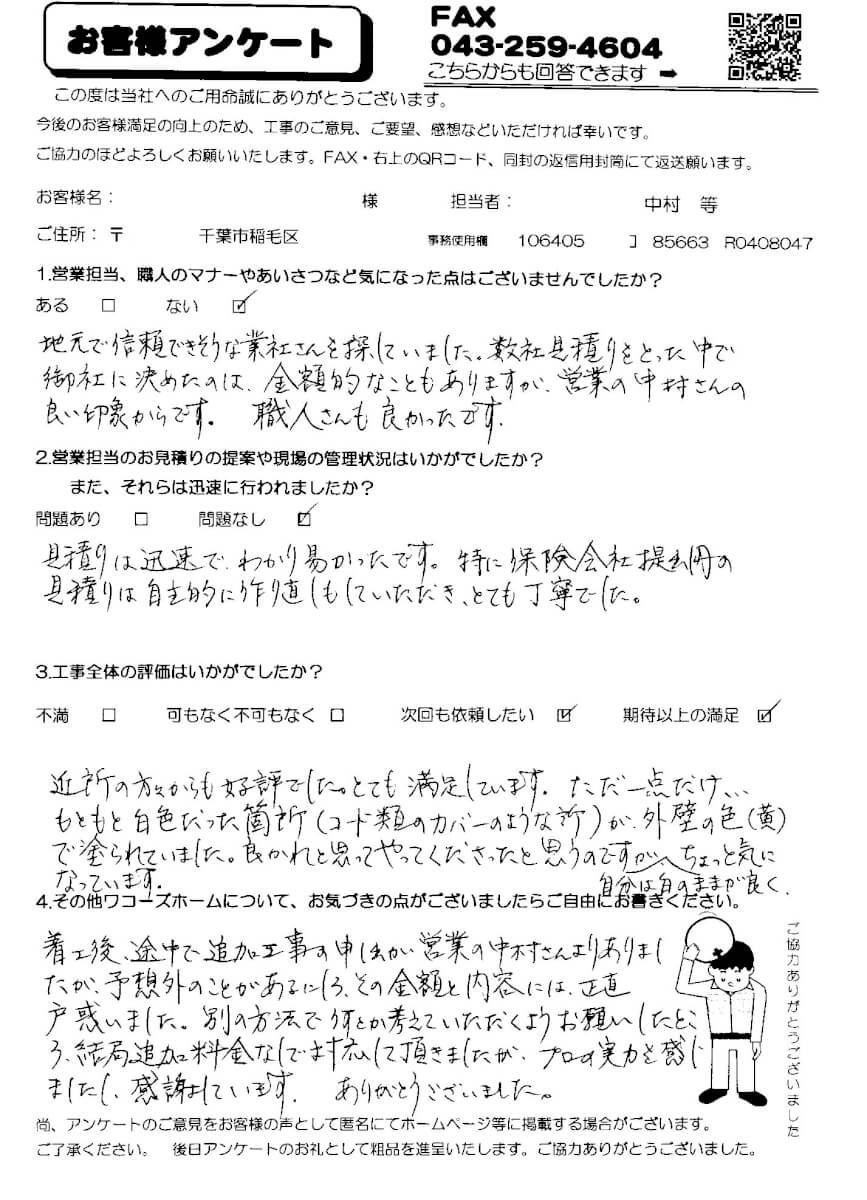 お客様アンケート
FAX
043-259-4604
こちらからも回答できます ➡
この度は当社へのご用命誠にありがとうございます。
今後のお客様満足の向上のため、工事のご意見、ご要望、感想などいただければ幸いです。
ご協力のほどよろしくお願いいたします。FAX・右上のQRコード、同封の返信用封筒にて返送願います。
お客様名： 様 担当者： 中村 等
ご住所：〒 千葉市稲毛区 事務使用欄 106405 コ 85663 R0408047
1.営業担当、職人のマナーやあいさつなど気になった点はございませんでしたか？
ある □ ない ☑
地元で信頼できそうな業社さんを探していました。数社見積りをとった中で
御社に決めたのは、金額的なこともありますが、営業の中村さんの
良い印象からです。 職人さんも良かったです。
2.営業担当のお見積りの提案や現場の管理状況はいかがでしたか？
また、それらは迅速に行われましたか？
問題あり □ 問題なし ☑
見積りは迅速で、わかり易かったです。特に保険会社提出用の
見積りは自主的に作り直しもしていただき、とても丁寧でした。
3.工事全体の評価はいかがでしたか？
不満 □ 可もなく不可もなく □ 次回も依頼したい ☑ 期待以上の満足 ☑
近所の方々からも好評でした。とても満足しています。ただ一点だけ…
もともと白色だった箇所（コード類のカバーのような所）が、外壁の色（黄）
で塗られていました。良かれと思ってやってくださったと思うのですが、ちょっと気に
なっています。
自分は白のままが良く、
4.その他ワコーズホームについて、お気づきの点がございましたらご自由にお書きください。
着工後、途中で追加工事の申し出が営業の中村さんよりありまし
たが、予想外のことがあるにしろ、その金額と内容には、正直
戸惑いました。別の方法で何とか考えていただくようお願いしたとこ
ろ、結局追加料金なしで対応して頂きましたが、プロの実力を感じ
ましたし、感謝しています。 ありがとうございました。
ご協力ありがとうございました
尚、アンケートのご意見をお客様の声として匿名にてホームページ等に掲載する場合がございます。
ご了承ください。 後日アンケートのお礼として粗品を進呈いたします。ご協力ありがとうございました。